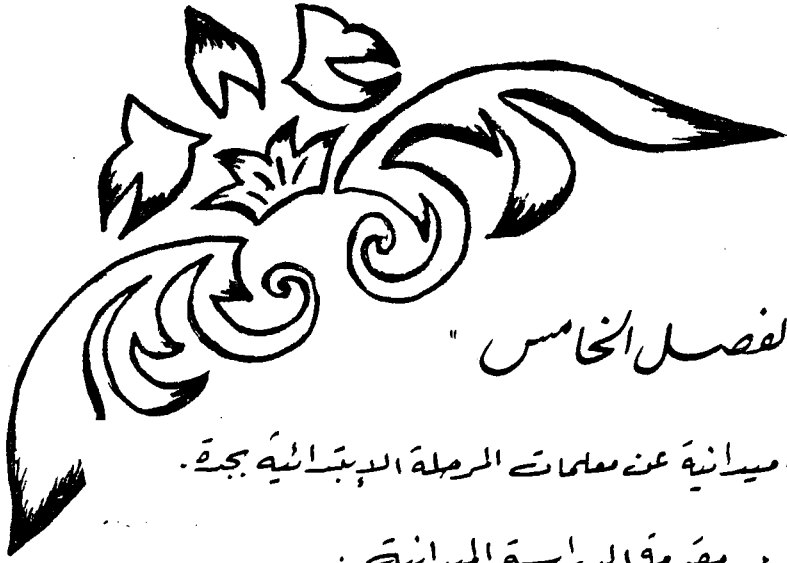 لفصل الخامس "
ميدانية عن معلمات المرحلة الإبتدائية بجدة.
. مقدمة الدراسة الميدانية .